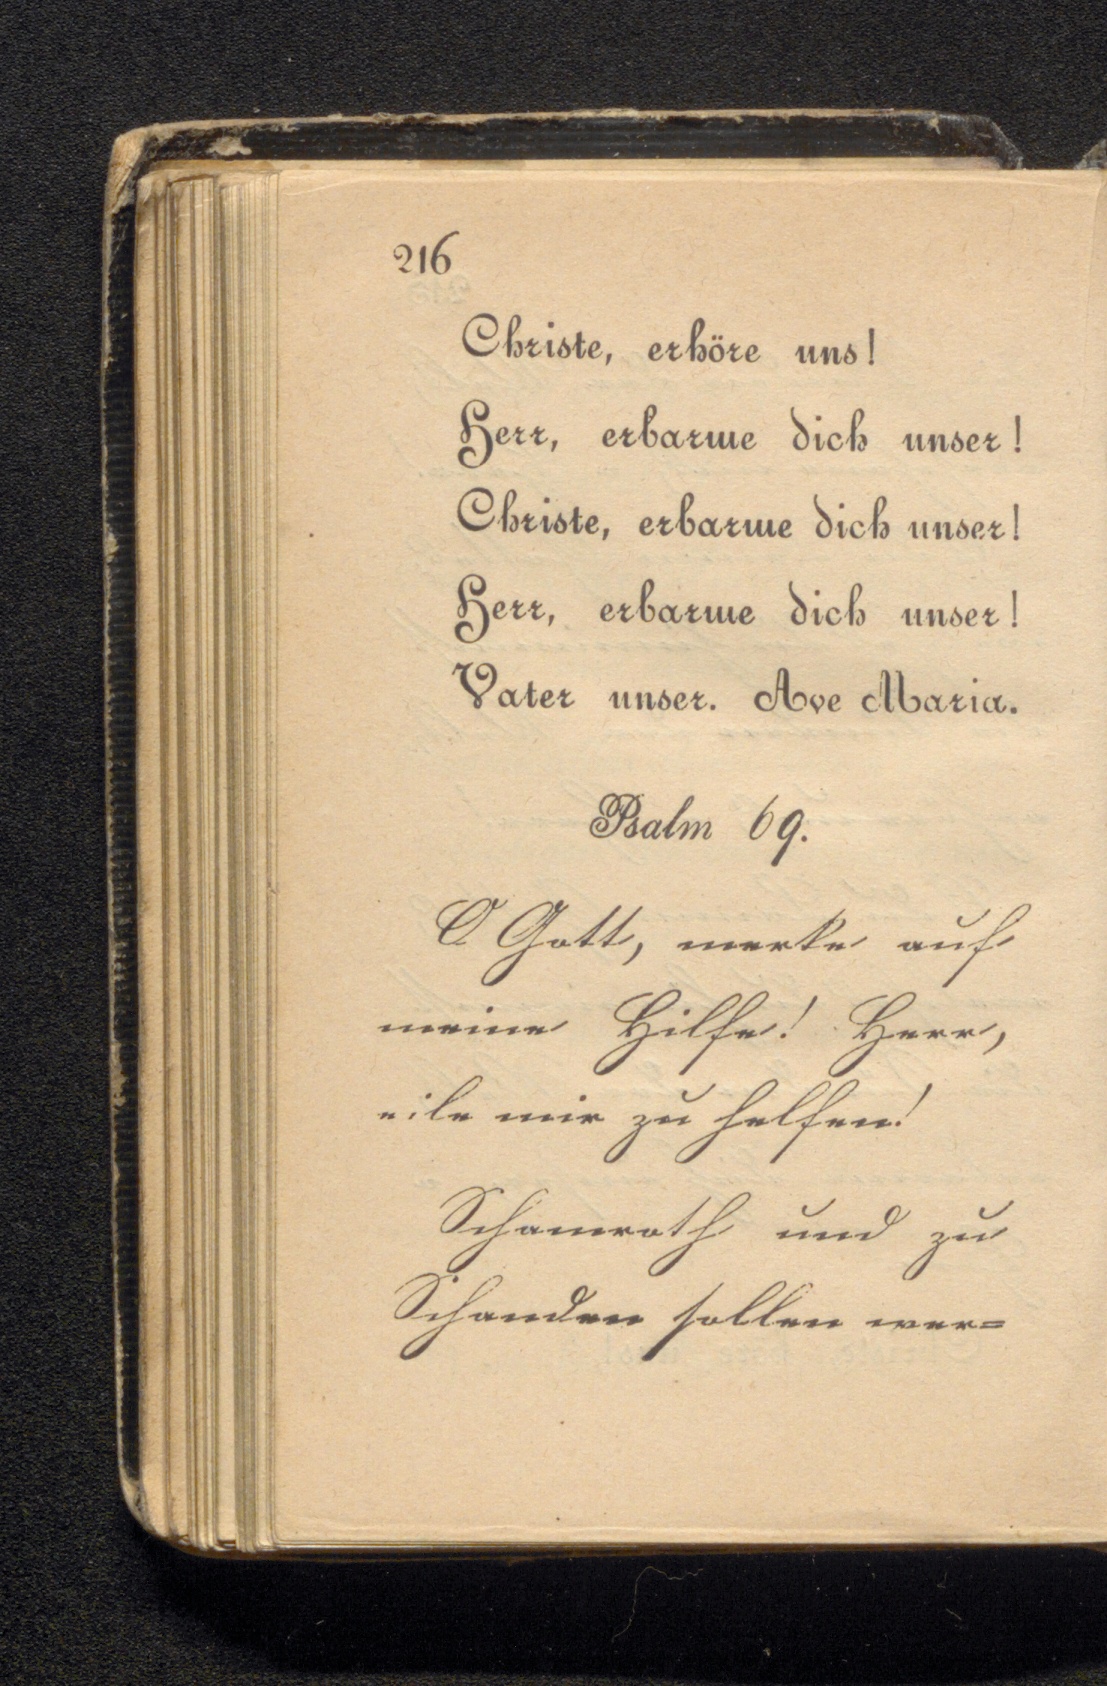 216
Christe, erhöre uns!
Herr, erbarme dich unser!
Christe, erbarme dich unser!
Herr, erbarme dich unser!
Vater unser. Ave Maria.
Psalm 69.
O Gott, merke auf
meine Hilfe! Herr,
eile mir zu helfen!
Schamroth und zu
Schanden sollen wer=